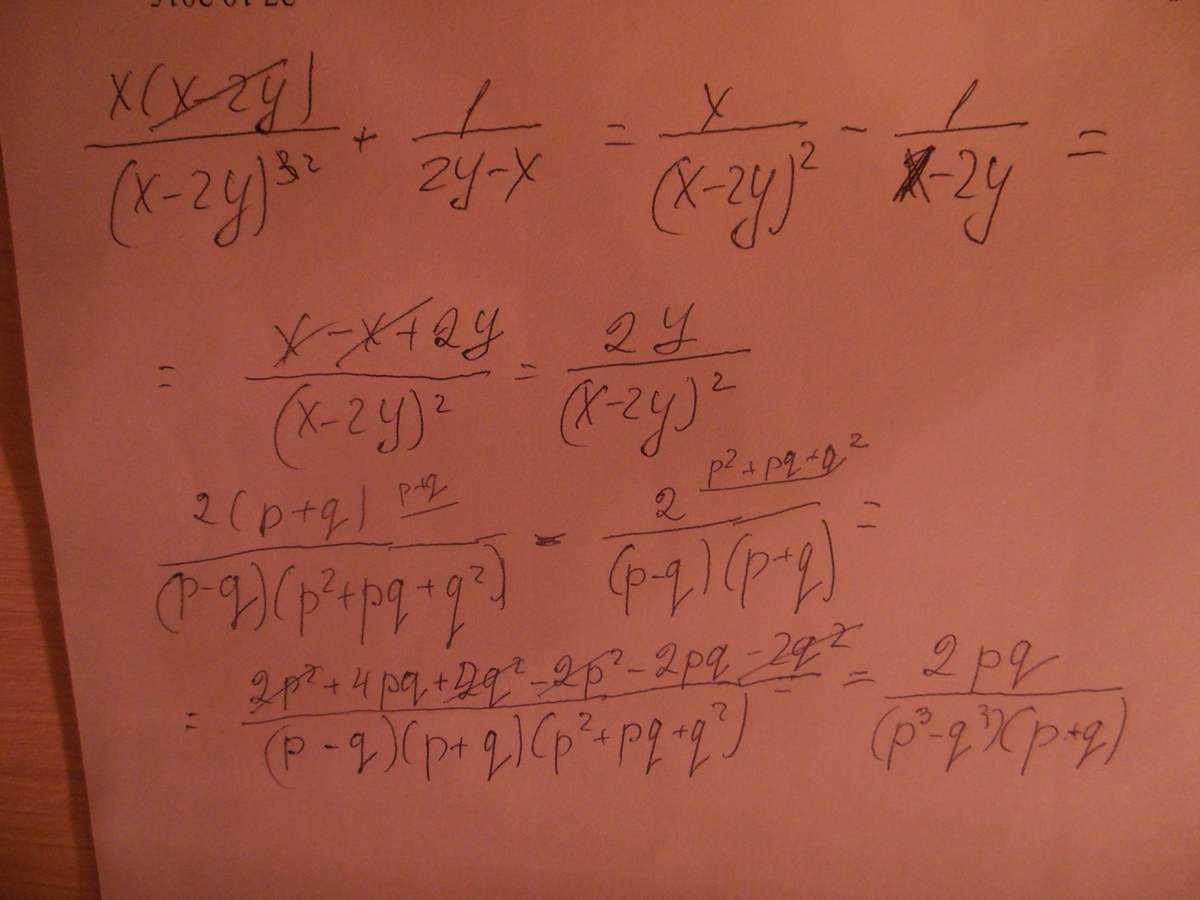 x(x-2y)/(x-2y)^2 + 1/(2y-x) = x/(x-2y)^2 - 1/(x-2y) =
= (x-x+2y)/(x-2y)^2 = 2y/(x-2y)^2
2(p+q) p+q/(p-q)(p^2+pq+q^2) - 2 p^2+pq+q^2/(p-q)(p+q) =
= (2p^2+4pq+2q^2-2p^2-2pq-2q^2)/(p-q)(p+q)(p^2+pq+q^2) = 2pq/(p^3-q^3)(p+q)